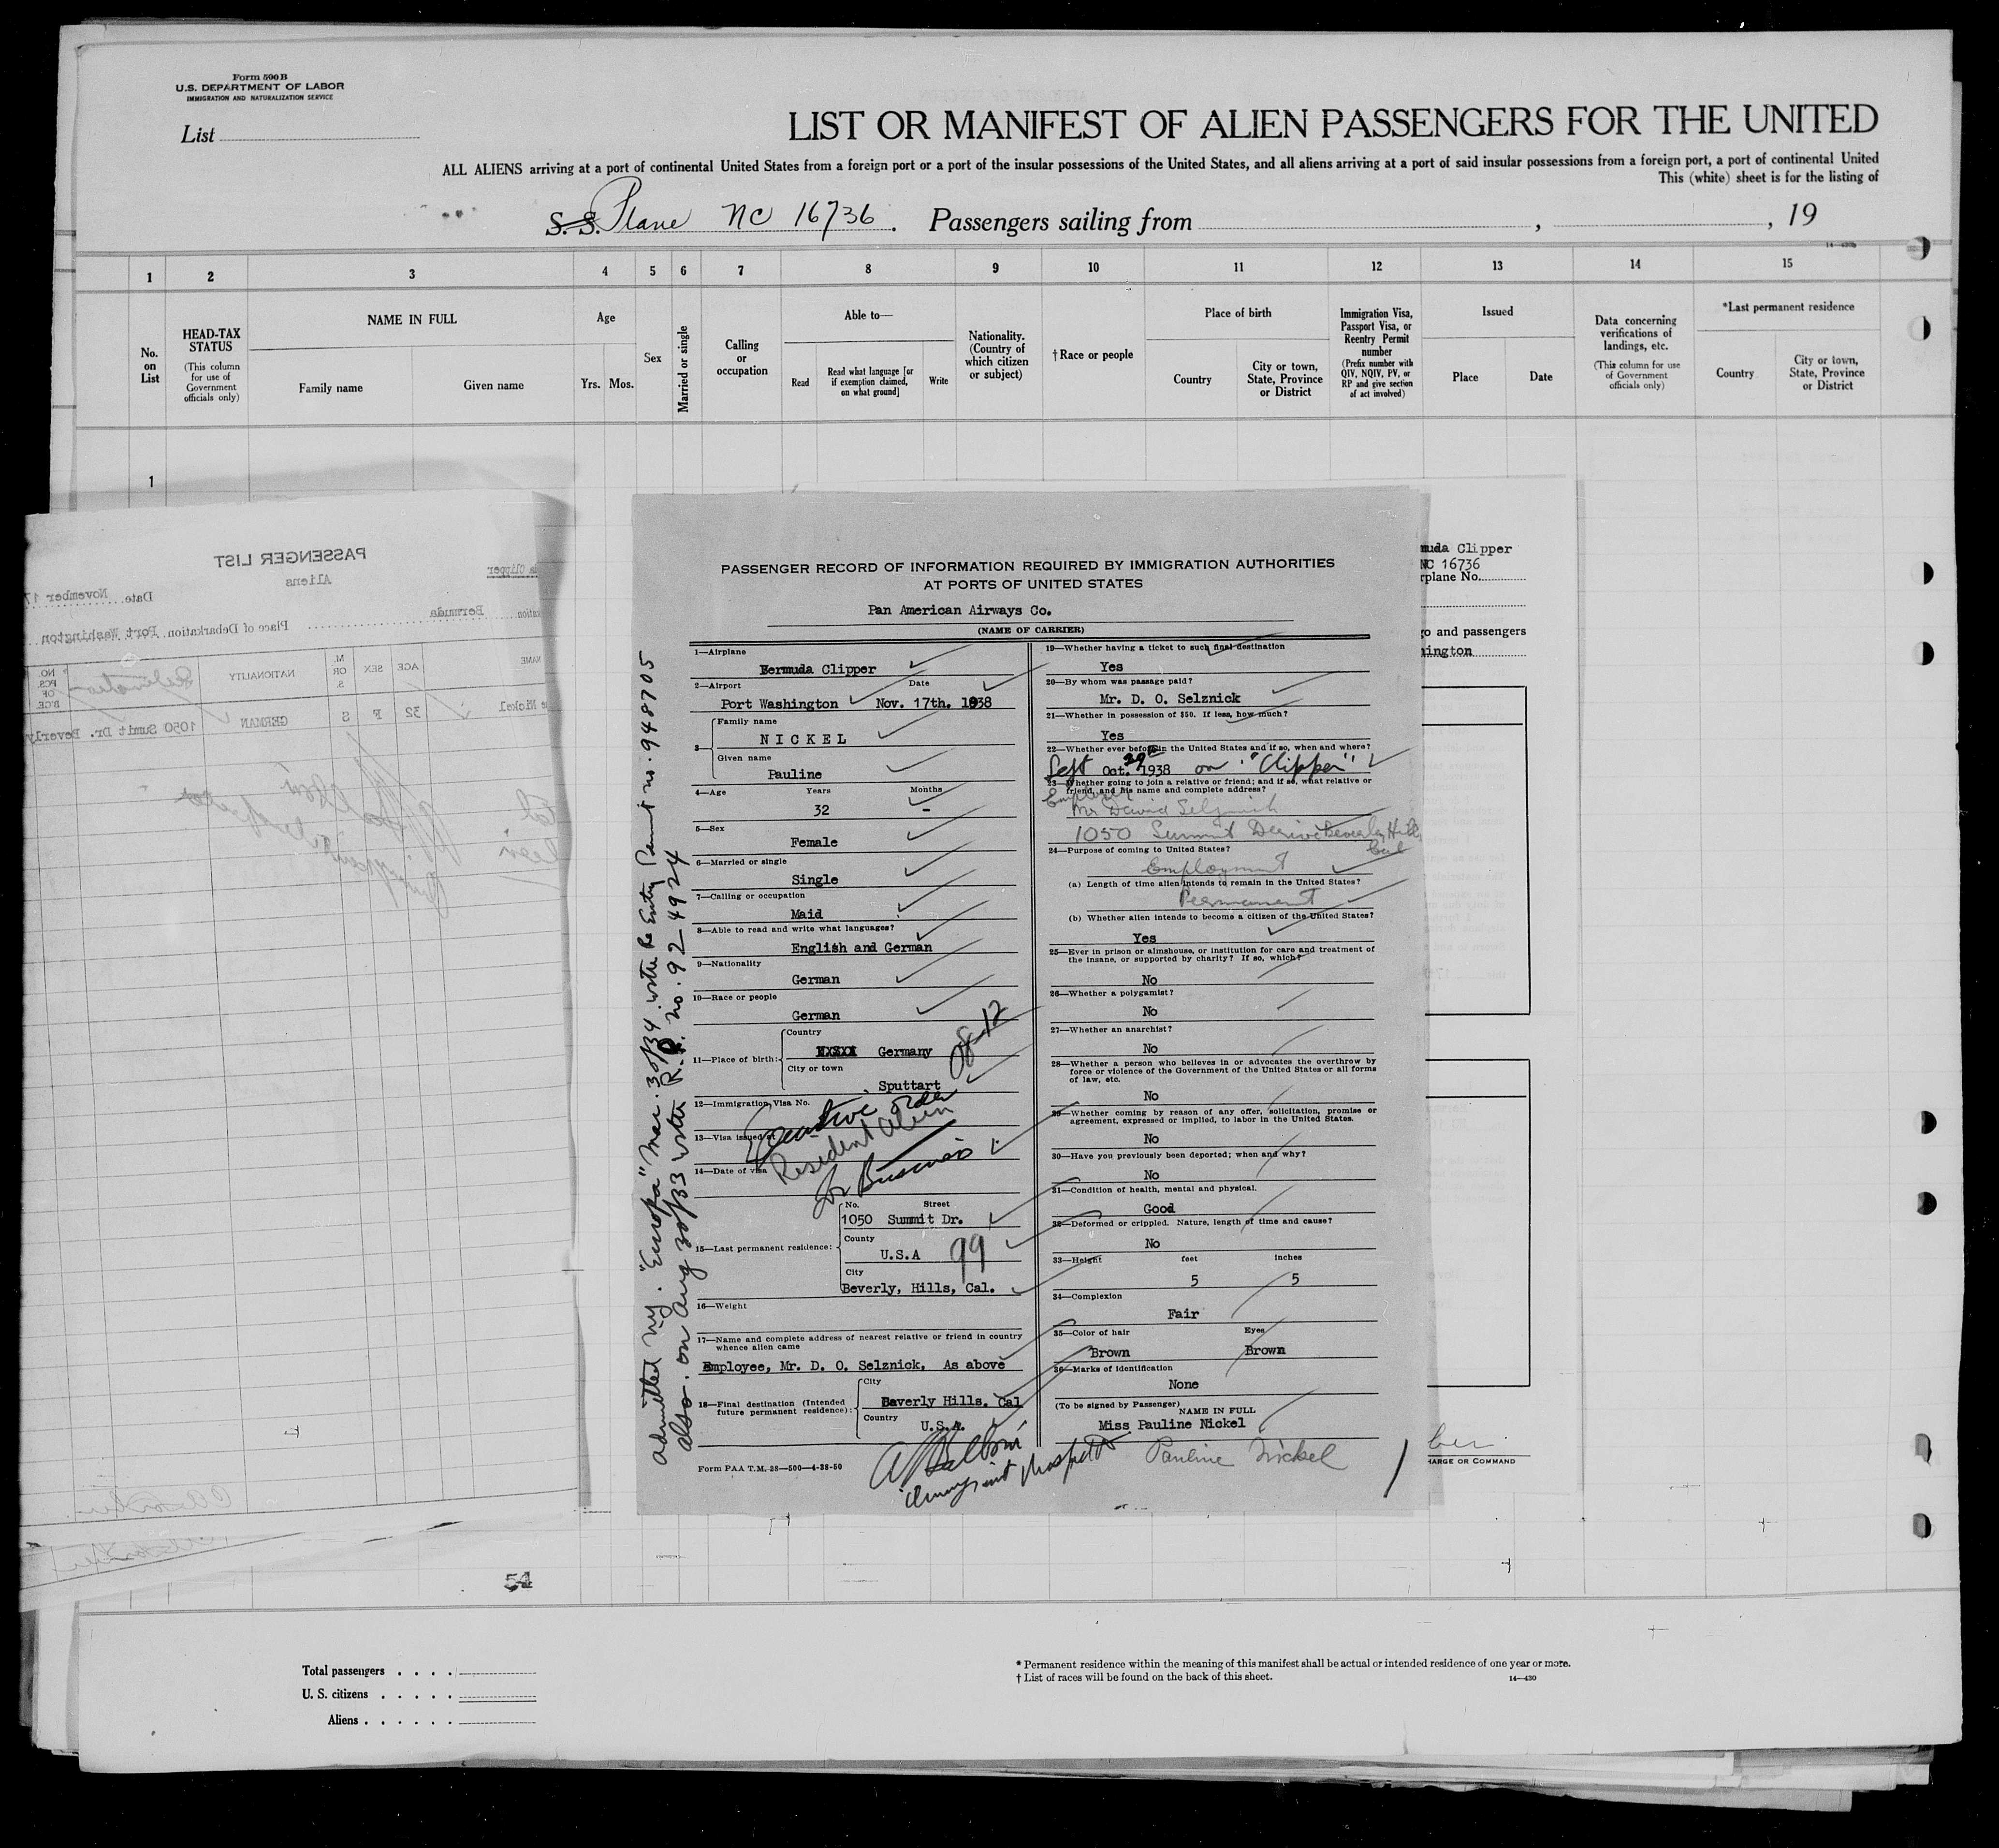 Form 500 B
U.S. DEPARTMENT OF LABOR
IMMIGRATION AND NATURALIZATION SERVICE
List
LIST OR MANIFEST OF ALIEN PASSENGERS FOR THE UNITED
ALL ALIENS arriving at a port of continental United States from a foreign port or a port of the insular possessions of the United States, and all aliens arriving at a port of said insular possessions from a foreign port, a port of continental United
This (white) sheet is for the listing of
S. S. Plane NC 16736. Passengers sailing from , , 19
14—430b
1 2 3 4 5 6 7 8 9 10 11 12 13 14 15
No. on List
HEAD-TAX STATUS
(This column for use of Government officials only)
NAME IN FULL
Family name Given name
Age
Yrs. Mos.
Sex
Married or single
Calling or occupation
Able to—
Read
Read what language [or if exemption claimed, on what ground]
Write
Nationality. (Country of which citizen or subject)
†Race or people
Place of birth
Country
City or town, State, Province or District
Immigration Visa, Passport Visa, or Reentry Permit number
(Prefix number with QIV, NQIV, PV, or RP and give section of act involved)
Issued
Place Date
Data concerning verifications of landings, etc.
(This column for use of Government officials only)
*Last permanent residence
Country
City or town, State, Province or District
1
PASSENGER LIST
Aliens
a Clipper
Date November 17
Bermuda
Place of Debarkation Port Washington
NAME AGE SEX M. OR S. NATIONALITY Destination NO. PCS. OF B'G'E.
e Nickel 32 F S GERMAN 1050 Sumit Dr. Beverly
PASSENGER RECORD OF INFORMATION REQUIRED BY IMMIGRATION AUTHORITIES
AT PORTS OF UNITED STATES
Pan American Airways Co.
(NAME OF CARRIER)
1—Airplane
Bermuda Clipper
2—Airport Date
Port Washington Nov. 17th. 1938
3—
Family name
NICKEL
Given name
Pauline
4—Age Years Months
32 -
5—Sex
Female
6—Married or single
Single
7—Calling or occupation
Maid
8—Able to read and write what languages?
English and German
9—Nationality
German
10—Race or people
German
11—Place of birth:
Country
Germany
City or town
Sputtart
12—Immigration Visa No.
Executive order
13—Visa issued at
Resident Alien
14—Date of visa
on Business
15—Last permanent residence:
No. Street
1050 Summit Dr.
County
U.S.A 99
City
Beverly, Hills, Cal.
16—Weight
17—Name and complete address of nearest relative or friend in country
whence alien came
Employee, Mr. D. O. Selznick. As above
18—Final destination (Intended
future permanent residence):
City
Beverly Hills. Cal
Country
U.S.A.
Form PAA T.M. 28—500—4-38-50
19—Whether having a ticket to such final destination
Yes
20—By whom was passage paid?
Mr. D. O. Selznick
21—Whether in possession of $50. If less, how much?
Yes
22—Whether ever before in the United States and if so, when and where?
Sept Oct. 29 1938 on "Clipper"
23—Whether going to join a relative or friend; and if so, what relative or
friend, and his name and complete address?
Employer
Mr David Selznick
1050 Summit Drive Beverly Hills
Cal
24—Purpose of coming to United States?
Employment
(a) Length of time alien intends to remain in the United States?
Permanent
(b) Whether alien intends to become a citizen of the United States?
Yes
25—Ever in prison or almshouse, or institution for care and treatment of
the insane, or supported by charity? If so, which?
No
26—Whether a polygamist?
No
27—Whether an anarchist?
No
28—Whether a person who believes in or advocates the overthrow by
force or violence of the Government of the United States or all forms
of law, etc.
No
29—Whether coming by reason of any offer, solicitation, promise or
agreement, expressed or implied, to labor in the United States.
No
30—Have you previously been deported; when and why?
No
31—Condition of health, mental and physical.
Good
32—Deformed or crippled. Nature, length of time and cause?
No
33—Height feet inches
5 5
34—Complexion
Fair
35—Color of hair Eyes
Brown Brown
36—Marks of identification
None
(To be signed by Passenger)
NAME IN FULL
Miss Pauline Nickel
Pauline Nickel
Admitted Ny. "Europa" Mar. 30/34 with Re Entry Permit no. 948705
also on Aug 30/33 with R.P. no. 924924
muda Clipper
NC 16736
rplane No.
go and passengers
hington
HARGE OR COMMAND
54
Total passengers
U. S. citizens
Aliens
* Permanent residence within the meaning of this manifest shall be actual or intended residence of one year or more.
† List of races will be found on the back of this sheet.
14—430